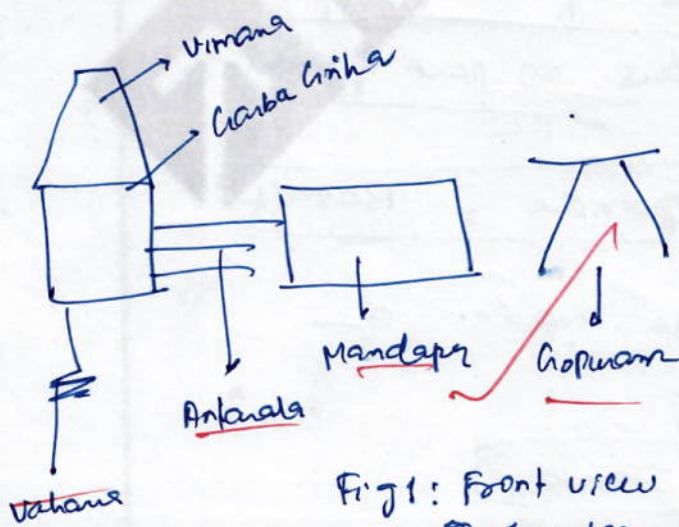 Vimana
Garba Griha
Mandapa
Gopuram
Antarala
Vahana
Fig 1: Front view